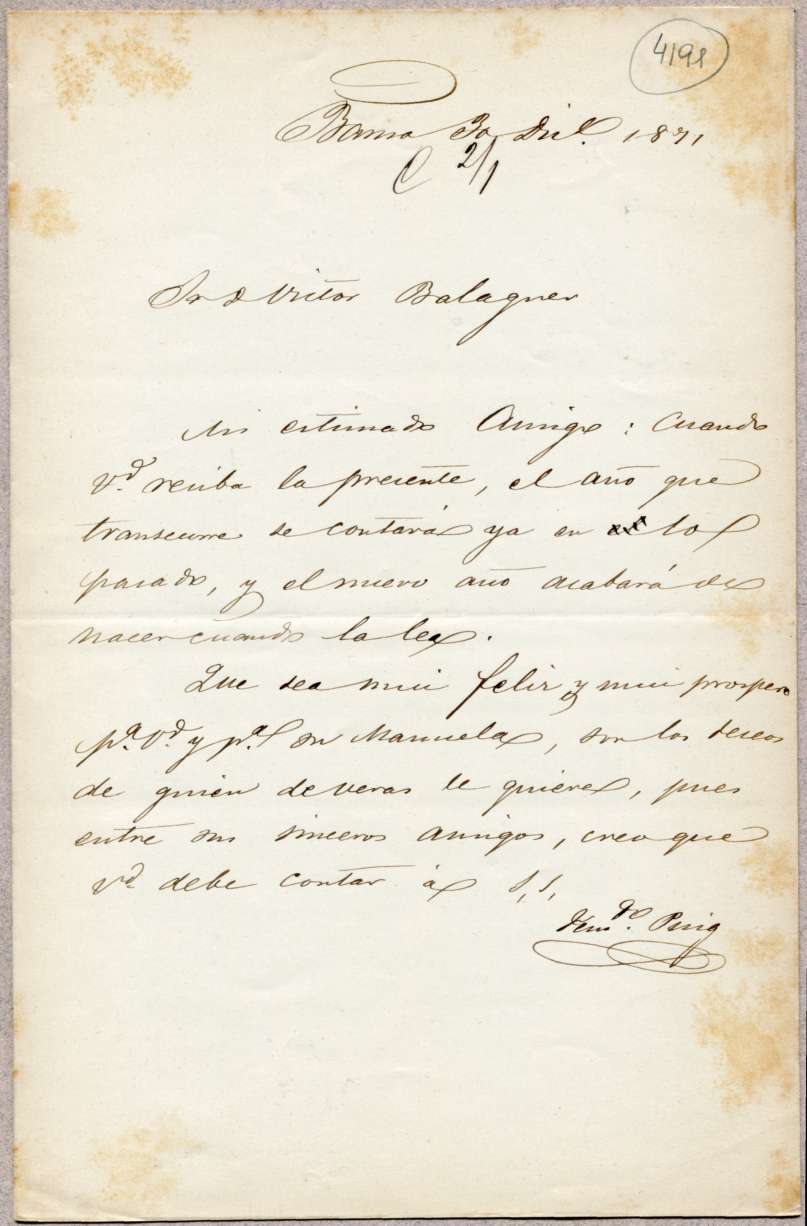 4198
Barna 30 Dice. 1871
C 2/1
Sr D Victor Balaguer
Mi estimado Amigo : Cuando
Vd. reciba la presente, el año que
transcurre se contará ya en lo
pasado, y el nuevo año acabará de
nacer cuando la lea.
Que sea mui feliz y mui prospero
pa. Vd. y pa. Da Manuela, son los deseos
de quien deveras le quiere, pues
entre sus sinceros amigos, creo que
Vd. debe contar á S, S,
Puig